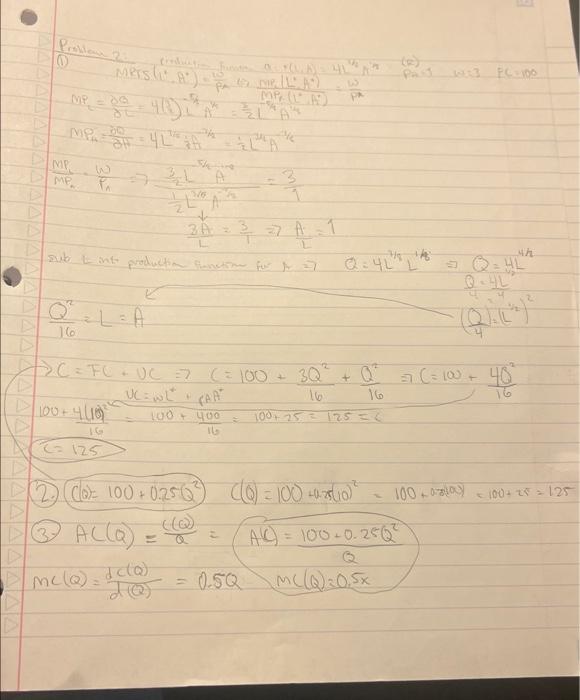 Problem 2: production function Q = f(L, A) = 4L^3/8 A^1/8 PA=1 W=3 FC=100
① MRTS(L*, A*) = W/PA ⇔ MPL(L*, A*)/MPA(L*, A*) = W/PA
MPL = ∂Q/∂L = 4(3/8)L^-5/8 A^1/8 = 3/2 L^-5/8 A^1/8
MPA = ∂Q/∂A = 4L^3/8 1/8 A^-7/8 = 1/2 L^3/8 A^-7/8
MPL/MPA = W/PA => 3/2 L^-5/8 A / 1/2 L^3/8 A^-7/8 = 3/1
↓
3A/L = 3/1 => A/L = 1
sub L into production function for A => Q = 4L^3/8 L^1/8 => Q = 4L^4/8
Q/4 = 4L^1/2/4
Q²/16 = L = A (Q/4)² = (L^1/2)²
C = FC + VC => C = 100 + 3Q²/16 + Q²/16 => C = 100 + 4Q²/16
VC = wL* + PAA*
100 + 4(10)²/16 = 100 + 400/16 = 100 + 25 = 125 = C
C = 125
2. C(Q) = 100 + 0.25Q² C(Q) = 100 + 0.25(10)² = 100 + 0.25(100) = 100 + 25 = 125
3. AC(Q) = C(Q)/Q = AC() = 100 + 0.25Q²/Q
MC(Q) = dC(Q)/d(Q) = 0.5Q MC(Q) = 0.5x